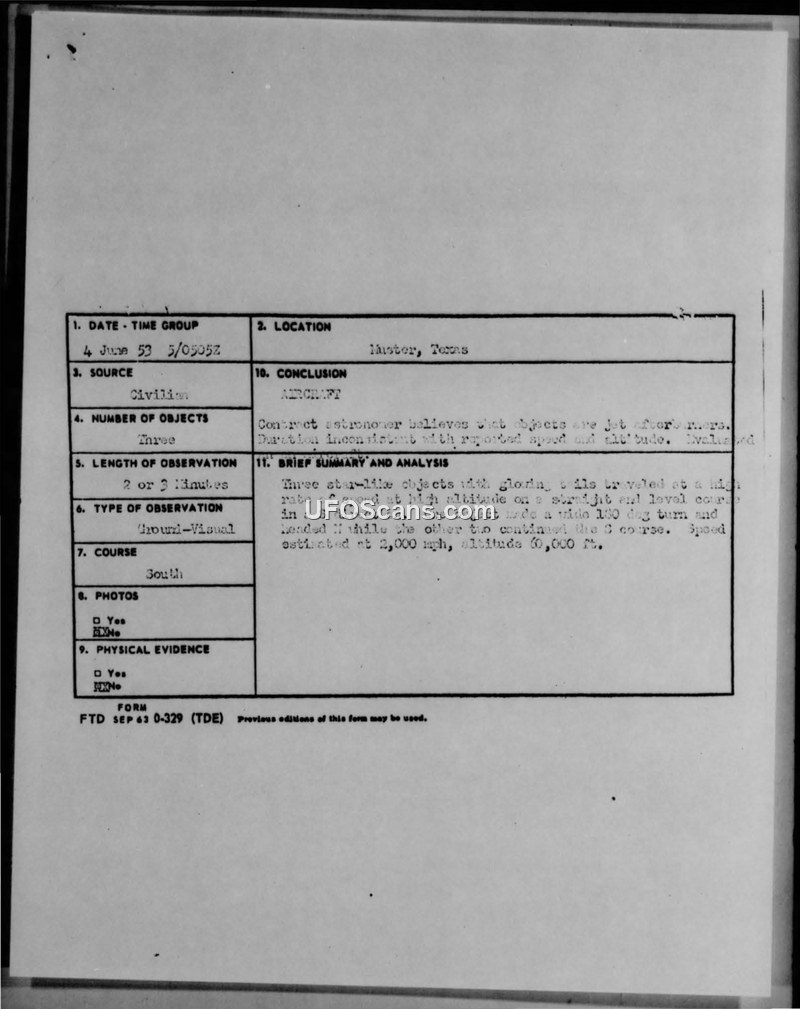 1. DATE - TIME GROUP
4 June 53 5/0505Z
2. LOCATION
Texas
3. SOURCE
Civilian
10. CONCLUSION
AIRCRAFT
4. NUMBER OF OBJECTS
Three
Contract astronomer believes that objects are jet afterburners.
Duration inconsistent with reported speed and altitude. Evaluated
5. LENGTH OF OBSERVATION
2 or 3 Minutes
11. BRIEF SUMMARY AND ANALYSIS
Three star-like objects with glowing tails traveled at a high
rate of speed at high altitude on a straight and level course
in made a wide 180 deg turn and
headed N while the other two continued the S course. Speed
estimated at 2,000 mph, altitude 60,000 ft.
6. TYPE OF OBSERVATION
Ground-Visual
7. COURSE
South
8. PHOTOS
□ Yes
No
9. PHYSICAL EVIDENCE
□ Yes
No
FORM
FTD SEP 63 0-329 (TDE) Previous editions of this form may be used.
UFOScans.com